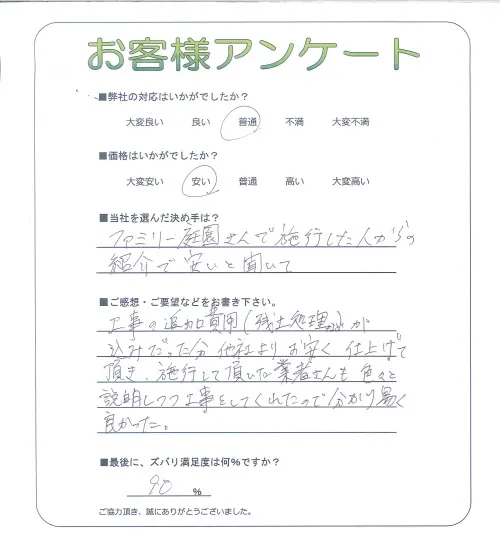 お客様アンケート
■弊社の対応はいかがでしたか？
大変良い 良い 普通 不満 大変不満
■価格はいかがでしたか？
大変安い 安い 普通 高い 大変高い
■当社を選んだ決め手は？
ファミリー庭園さんで施行した人からの
紹介で安いと聞いて
■ご感想・ご要望などをお書き下さい。
工事の追加費用(残土処理など)が
込みだった分 他社よりお安く仕上げて
頂き、施行して頂いた業者さんも色々と
説明しつつ工事をしてくれたので分かり易く
良かった。
■最後に、ズバリ満足度は何%ですか？
90 %
ご協力頂き、誠にありがとうございました。